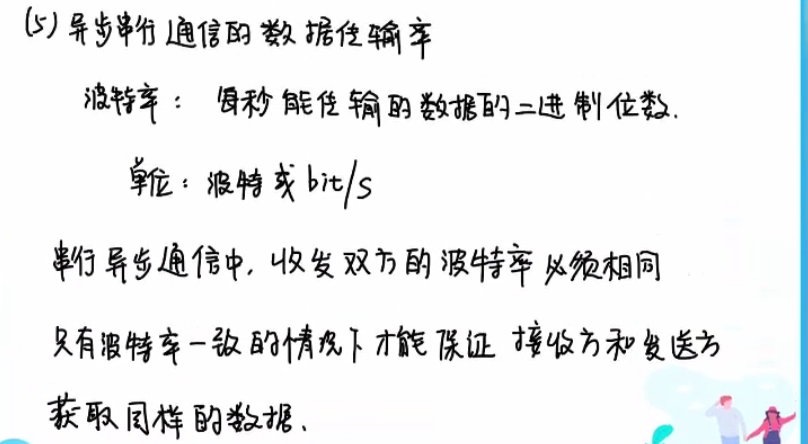 (5) 异步串行通信的数据传输率
波特率：每秒能传输的数据的二进制位数.
单位：波特或 bit/s
串行异步通信中, 收发双方的波特率必须相同
只有波特率一致的情况下才能保证 接收方和发送方
获取同样的数据.